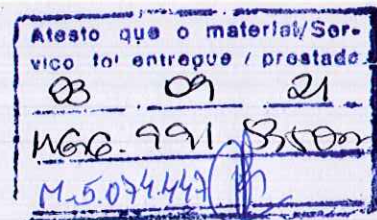 Atesto que o material/Ser-
vico foi entregue / prestado.
03 09 21
MG6. 991.
M-5.074.447